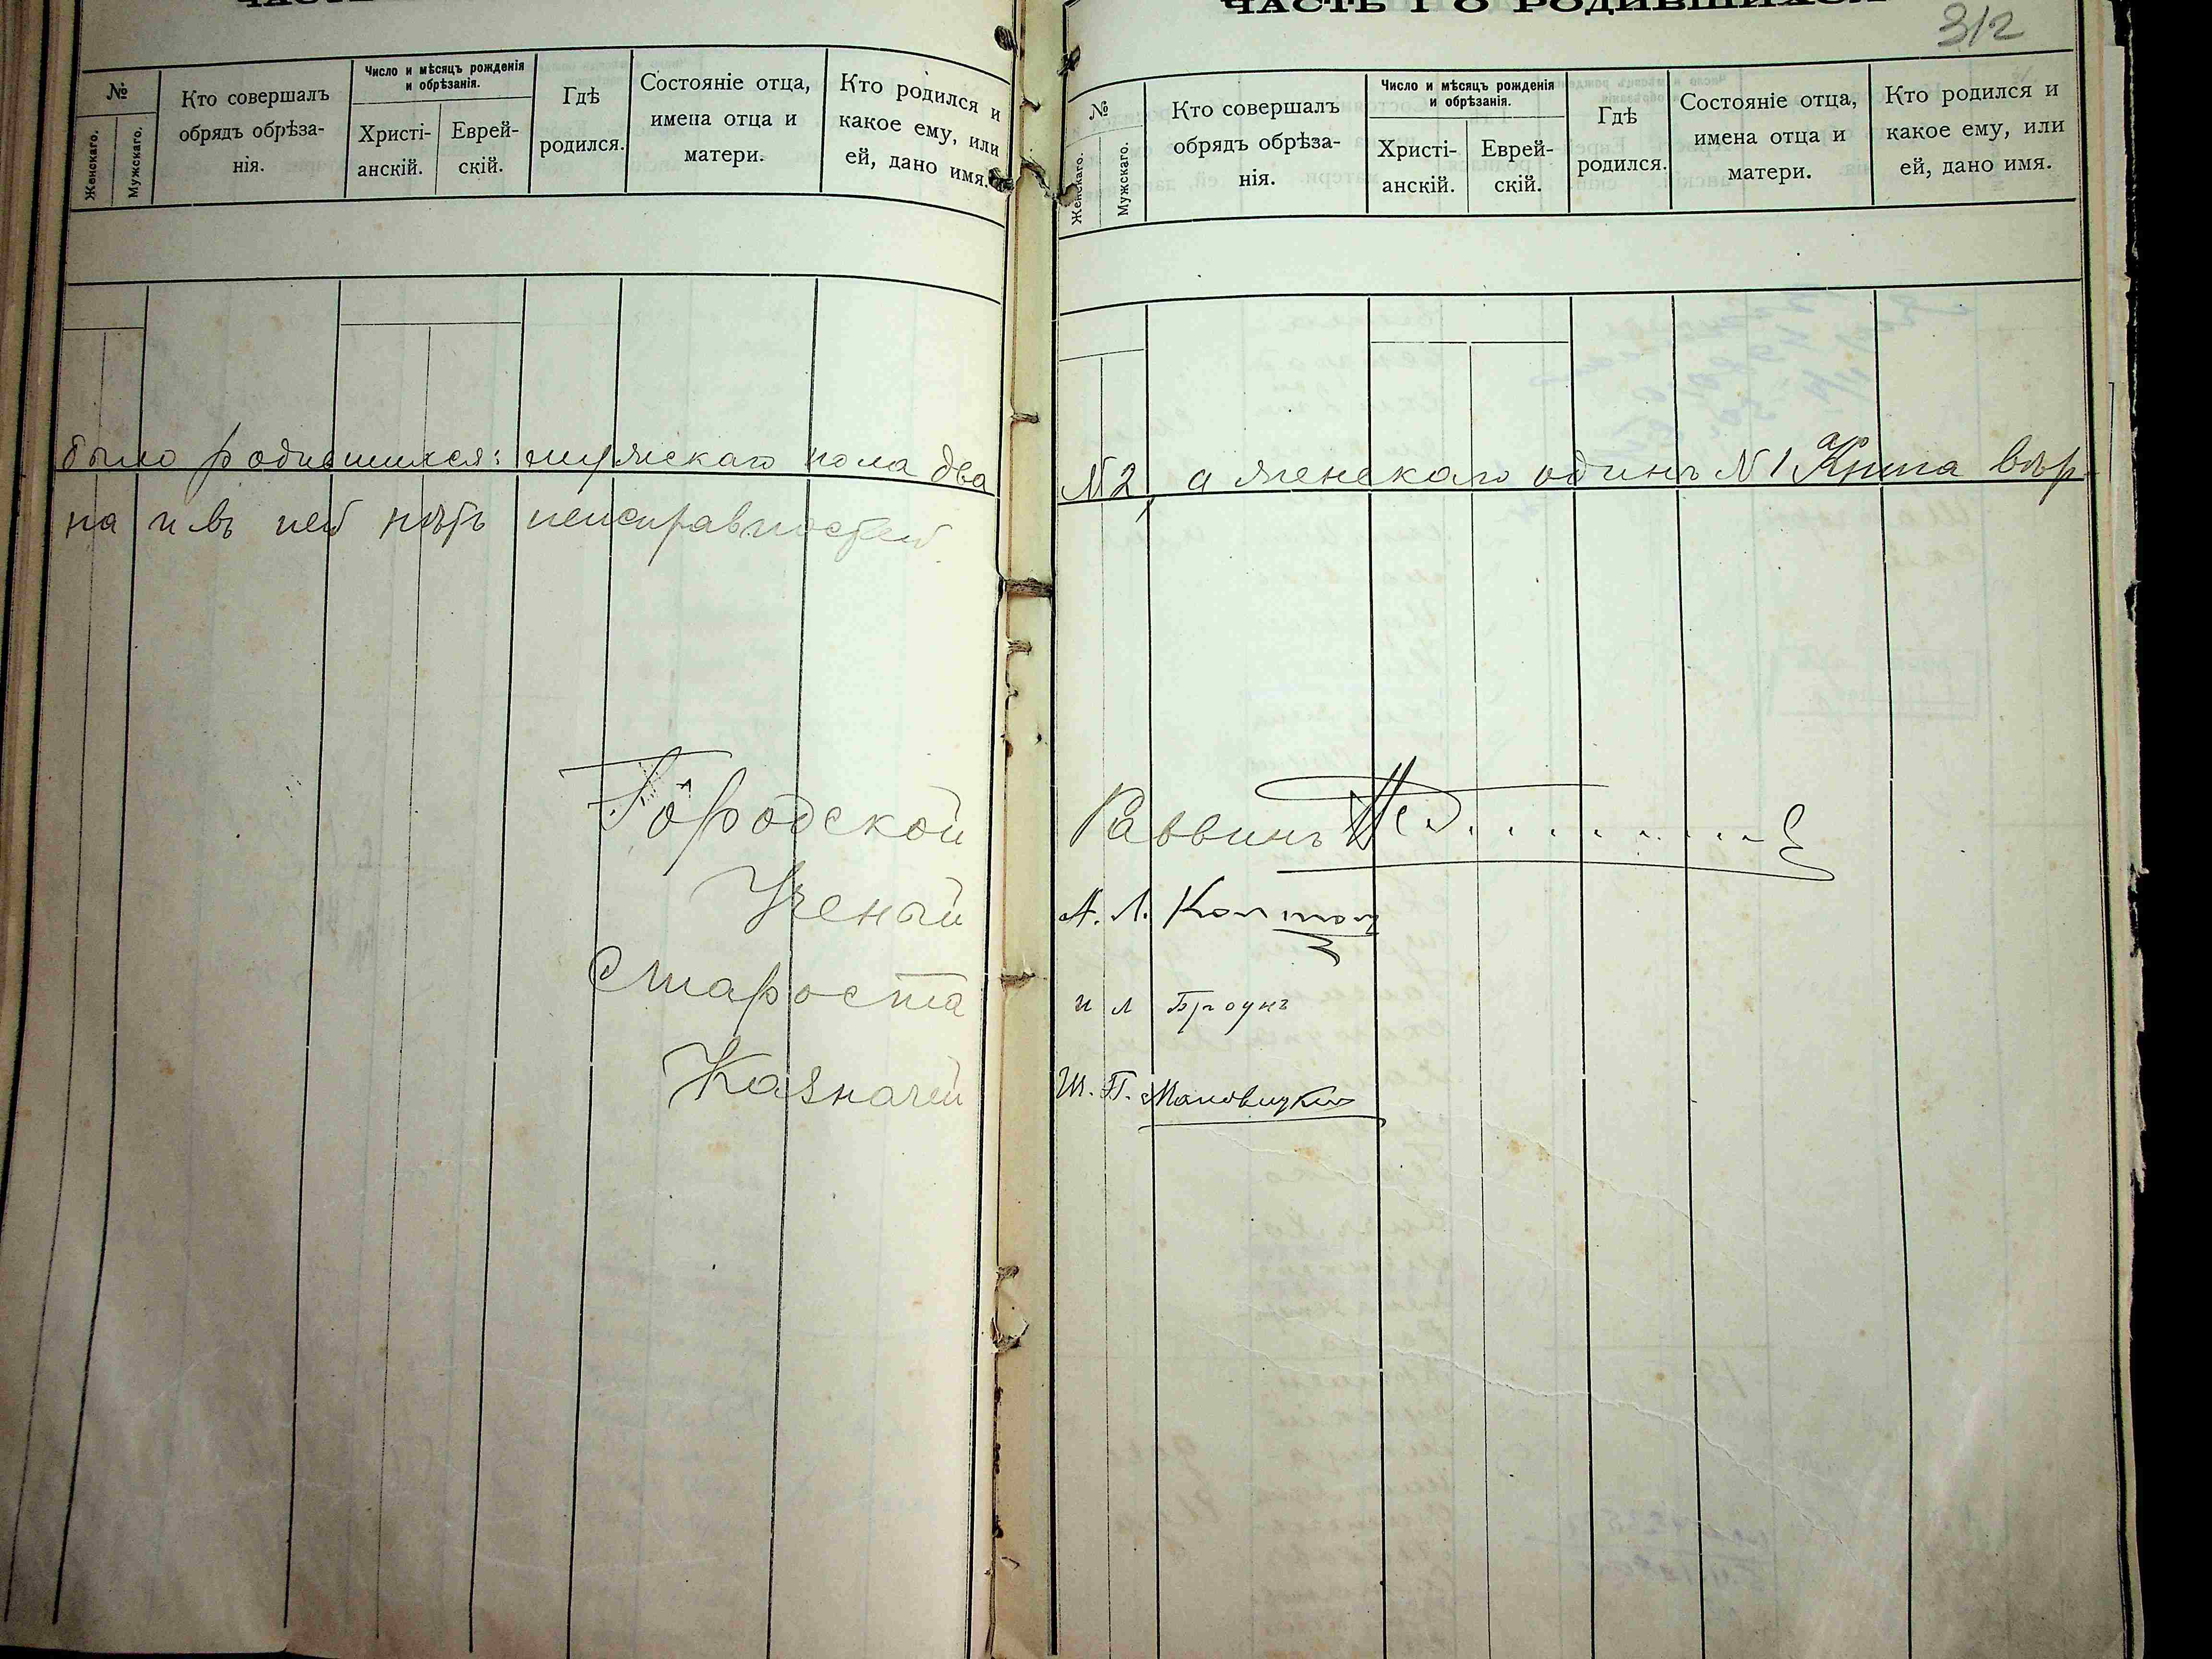 ЧАСТЬ I О РОДИВШИХСЯ
312
№
Женскаго.
Мужскаго.
Кто совершалъ
обрядъ обрѣза-
нія.
Число и мѣсяцъ рожденія
и обрѣзанія.
Христі-
анскій.
Еврей-
скій.
Гдѣ
родился.
Состояніе отца,
имена отца и
матери.
Кто родился и
какое ему, или
ей, дано имя.
№
Женскаго.
Мужскаго.
Кто совершалъ
обрядъ обрѣза-
нія.
Число и мѣсяцъ рожденія
и обрѣзанія.
Христі-
анскій.
Еврей-
скій.
Гдѣ
родился.
Состояніе отца,
имена отца и
матери.
Кто родился и
какое ему, или
ей, дано имя.
было родившихся: мужскаго пола два №2, а женскаго одинъ №1 Книга вѣр-
на и въ ней нѣтъ неисправностей
Городской Раввинъ
Ученый А. Л.
Староста И Л Броунъ
Казначей Ш. П.